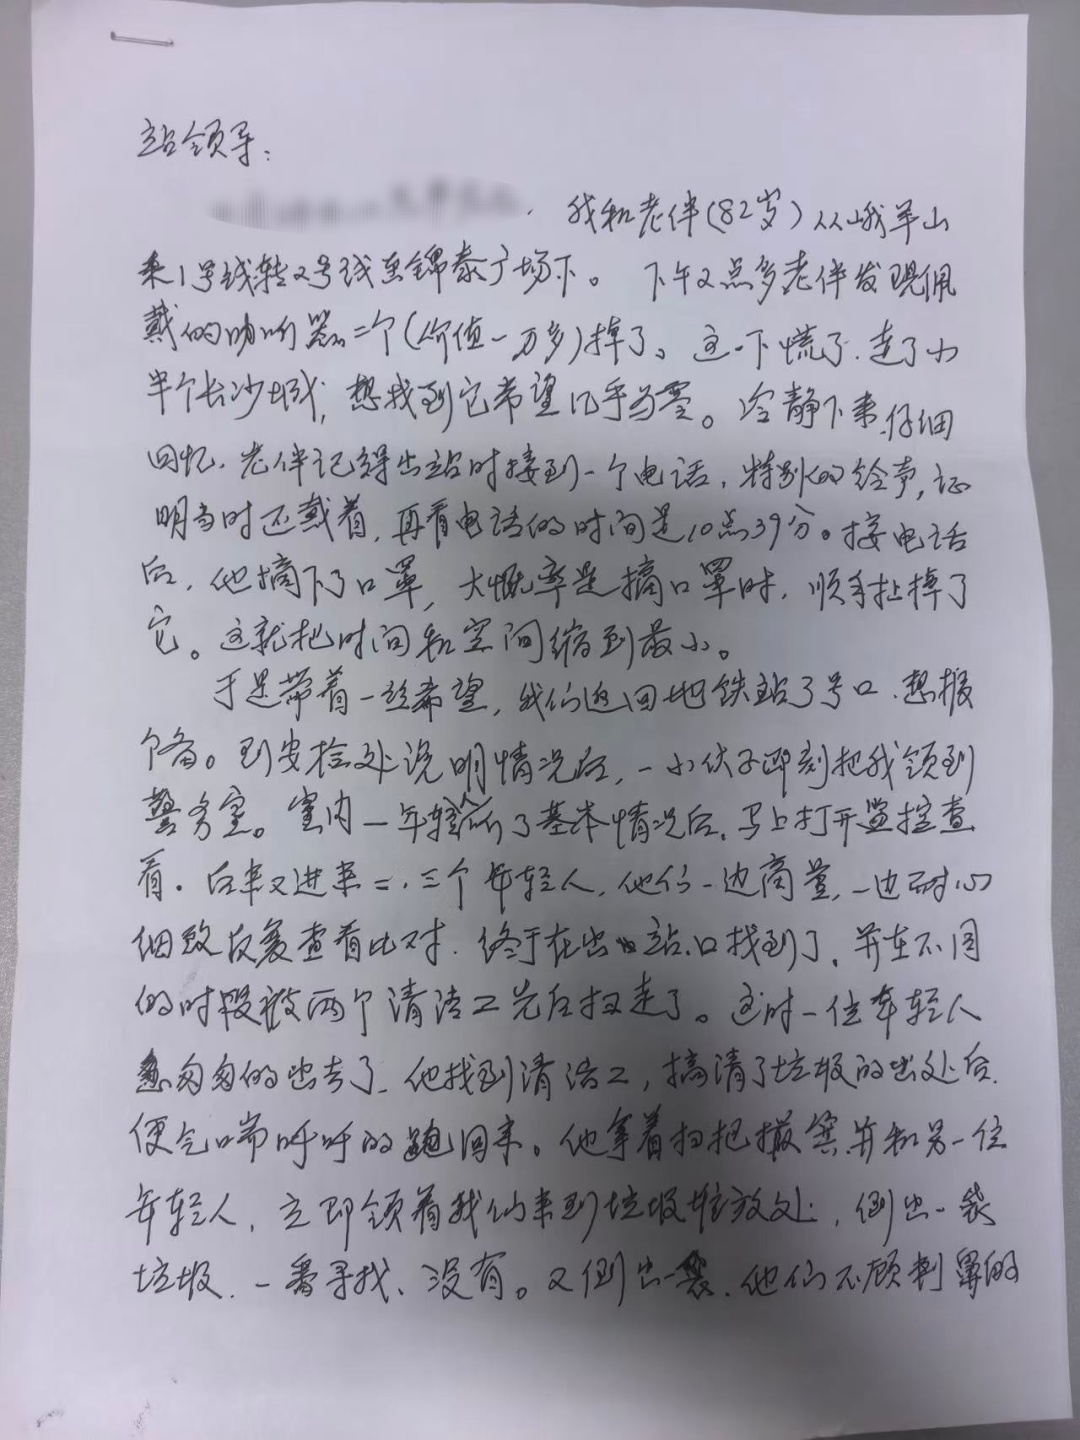 站领导:
我和老伴(82岁)从峨羊山
乘1号线转2号线至锦泰广场下。下午2点多老伴发现佩
戴的助听器二个(价值一万多)掉了。这一下慌了.走了小
半个长沙城,想找到它希望几乎为零。冷静下来.仔细
回忆.老伴记得出站时接到一个电话,特别的铃声,证
明当时还戴着,再看电话的时间是10点39分。接电话
后,他摘下了口罩,大慨率是摘口罩时.顺手扯掉了
它。这就把时间和空间缩到最小。
于是带着一丝希望,我们返回地铁站3号口.想报
个备。到安检处说明情况后,一小伙子即刻把我领到
警务室。室内一年轻人听了基本情况后.马上打开监控查
看.后来又进来二.三个年轻人.他们一边商量,一边耐心
细致反复查看比对.终于在出站口找到了.并在不同
的时段被两个清洁工先后扫走了。这时一位年轻人
急匆匆的出去了.他找到清洁工,搞清了垃圾的出处后.
便气喘呼呼的跑回来。他拿着扫把撮箕并和另一位
年轻人.立即领着我们来到垃圾堆放处.倒出一袋
垃圾.一番寻找、没有。又倒出一袋.他们不顾刺鼻的